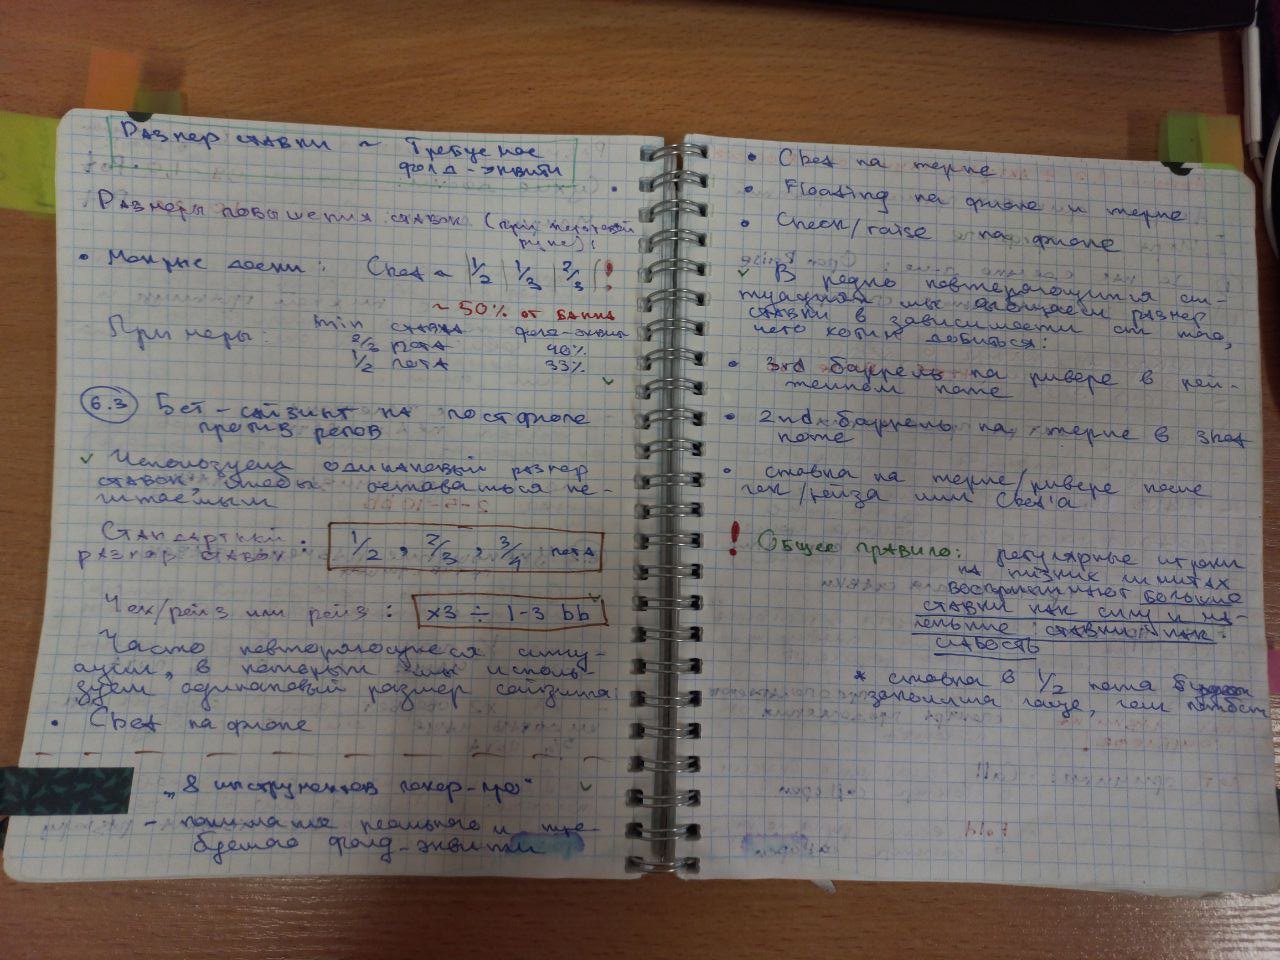 Размер ставки ~ Требуемое
фолд-эквити
Размеры повышения ставок (при
руке):
• Мокрые доски: Cbet ~ | 1/2 | 1/3 | 2/3 | !
~ 50% от банка
Примеры: min ставка фолд-эквити
2/3 пота 40%
1/2 пота 33%
6.3 Бет-сайзинг на постфлопе
против регов
✓ Используем одинаковый размер
ставок, чтобы оставаться не-
читаемым
Стандартный
размер ставок : 1/2 , 2/3 , 3/4 пота
Чек/рейз или рейз : x3 ÷ 1-3 bb
Часто повторяющиеся ситу-
ации, в которых мы исполь-
зуем одинаковый размер сайзинга:
• Cbet на флопе
„8 инструментов покер-про"
- понимание реального и тре-
буемого фолд-эквити
• Cbet на терне
• Floating на флопе и терне
• Check/raise на флопе
✓ В редко повторяющихся си-
туациях мы выбираем размер
ставки в зависимости от того,
чего хотим добиться:
• 3rd баррель на ривере в рей-
женном поте
• 2nd баррель на терне в 3bet
поте
• ставка на терне/ривере после
чек/рейза или Cbet'а
! Общее правило: регулярные игроки
на низких лимитах
воспринимают большие
ставки как силу и ма-
ленькие ставки как
слабость
* ставка в 1/2 пота
чаще, чем потбет